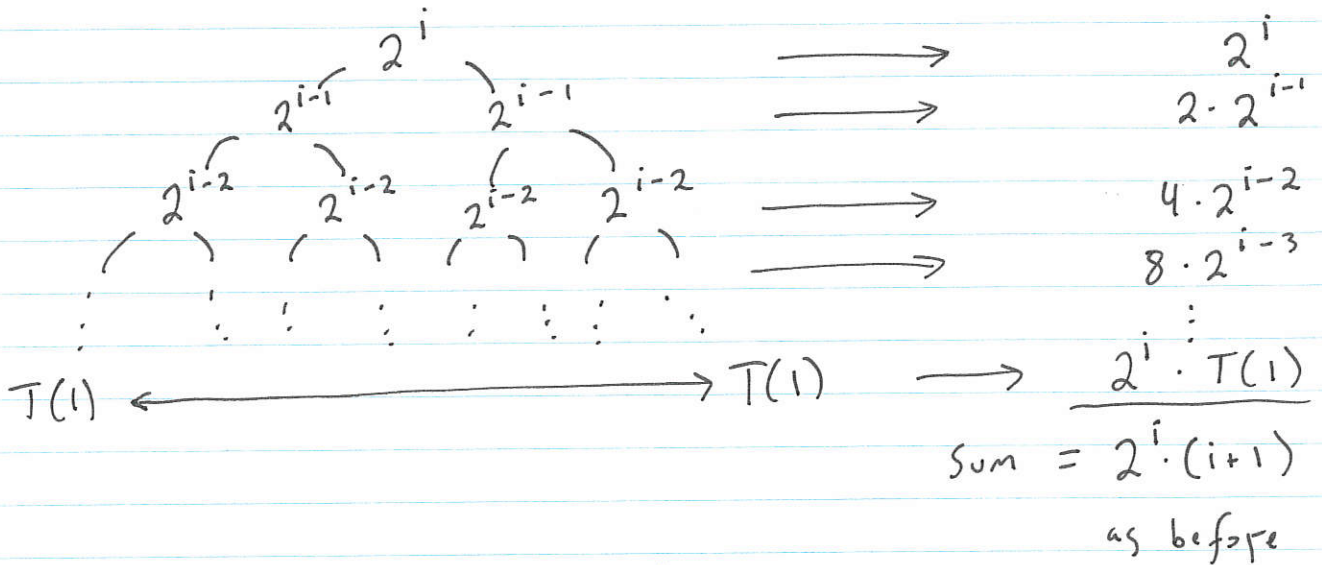 2^i ⟶ 2^i
2^{i-1} 2^{i-1} ⟶ 2 · 2^{i-1}
2^{i-2} 2^{i-2} 2^{i-2} 2^{i-2} ⟶ 4 · 2^{i-2}
⟶ 8 · 2^{i-3}
⋮ ⋮ ⋮ ⋮ ⋮ ⋮ ⋮ ⋮ ⋮
T(1) ⟷ T(1) ⟶ 2^i · T(1)
Sum = 2^i · (i+1)
as before